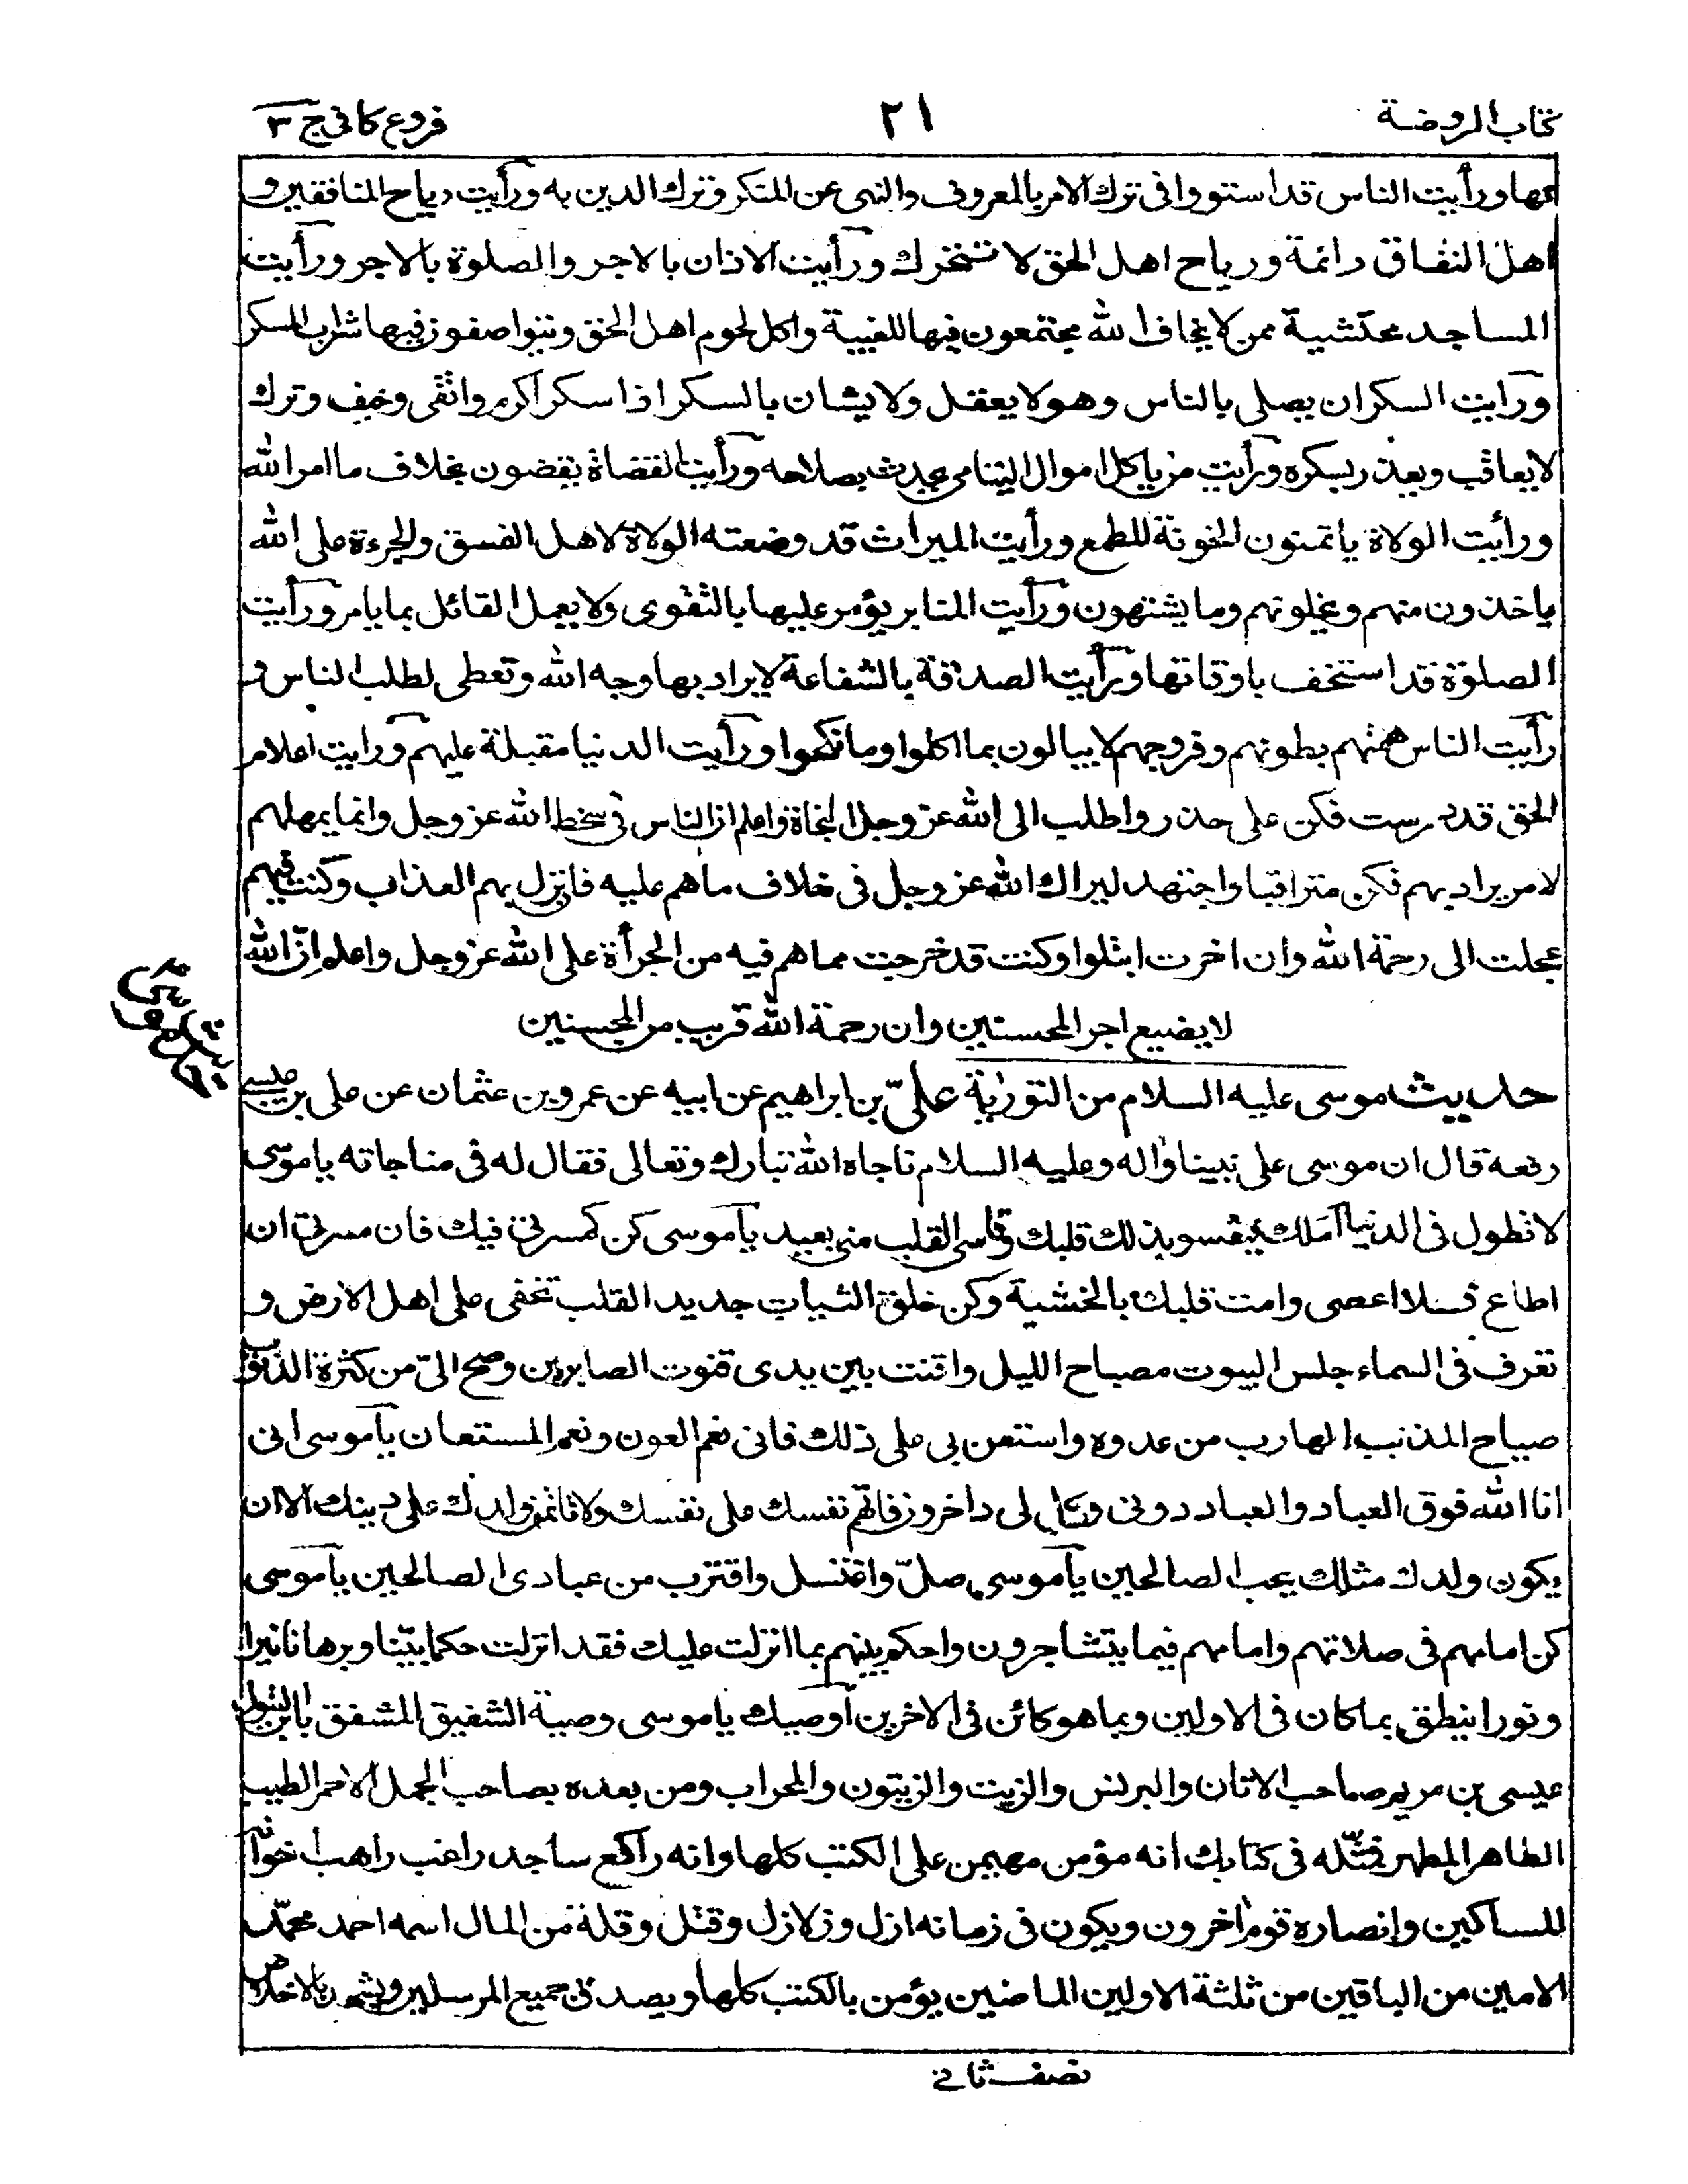 كتاب الروضة ٢١ فروع كافى ج ٣
عنها ورأيت الناس قد استووا فى ترك الامر بالمعروف والنهى عن المنكر وترك الدين به ورأيت رياح المنافقين و
اهل النفاق دائمة ورياح اهل الحق لا تتحرك ورأيت الاذان بالاجر والصلوة بالاجر ورأيت
المساجد محتشية ممن لا يخاف الله مجتمعون فيها للغيبة واكل لحوم اهل الحق ويتواصفون فيها شراب المسكر
ورايت السكران يصلى بالناس وهو لا يعقل ولا يشان بالسكر اذا سكر اكرم واتقى وخيف وترك
لا يعاقب ويعذر بسكره ورأيت من ياكل اموال اليتامى يحدث بصلاحه ورأيت القضاة يقضون بخلاف ما امر الله
ورأيت الولاة ياتمنون الخونة للطمع ورأيت الميراث قد وضعته الولاة لاهل الفسق والجرءة على الله
ياخذون منهم ويخلونهم وما يشتهون ورأيت المنابر يؤمر عليها بالتقوى ولا يعمل القائل بما يامر ورأيت
الصلوة قد استخف باوقاتها ورأيت الصدقة بالشفاعة لا يراد بها وجه الله وتعطى لطلب الناس و
رأيت الناس همتهم بطونهم وفروجهم لا يبالون بما اكلوا وما نكحوا ورأيت الدنيا مقبلة عليهم ورايت اعلام
الحق قد درست فكن على حذر واطلب الى الله عز وجل النجاة واعلم ان الناس فى سخط الله عز وجل وانما يمهلهم
لامر يراد بهم فكن مترقبا واجتهد ليراك الله عز وجل فى خلاف ما هم عليه فان نزل بهم العذاب وكنت فيهم
عجلت الى رحمة الله وان اخرت ابتلوا وكنت قد خرجت مما هم فيه من الجرأة على الله عز وجل واعلم انّ الله
لا يضيع اجر المحسنين وان رحمة الله قريب من المحسنين
حديث موسى عليه السلام من التورية علىّ بن ابراهيم عن ابيه عن عمرو بن عثمان عن على بن عيسى
رفعه قال ان موسى على نبينا واله وعليه السلام ناجاه الله تبارك وتعالى فقال له فى مناجاته يا موسى
لا تطول فى الدنيا املك فيقسو بذلك قلبك وقاسى القلب منى بعيد يا موسى كن كمسرتى فيك فان مسرتى ان
اطاع فلا اعصى وامت قلبك بالخشية وكن خلق الثياب جديد القلب تخفى على اهل الارض و
تعرف فى السماء جلس البيوت مصباح الليل واقنت بين يدى قنوت الصابرين وصح الىّ من كثرة الذنوب
صياح المذنب الهارب من عدوه واستعن بى على ذلك فانى نعم العون ونعم المستعان يا موسى انى
انا الله فوق العباد والعباد دونى وكل لى داخرون فاتهم نفسك على نفسك ولا تاتمن ولدك على دينك الا ان
يكون ولدك مثلك يحب الصالحين يا موسى صلّ واغتسل واقترب من عبادى الصالحين يا موسى
كن امامهم فى صلاتهم وامامهم فيما يتشاجرون واحكم بينهم بما انزلت عليك فقد انزلت حكما بيّنا وبرهانا نيرا
ونورا ينطق بما كان فى الاولين وبما هو كائن فى الاخرين اوصيك يا موسى وصية الشفيق المشفق بابن البتول
عيسى بن مريم صاحب الاتان والبرنس والزيت والزيتون والمحراب ومن بعده بصاحب الجمل الاحمر الطيب
الطاهر المطهر فمثله فى كتابك انه مؤمن مهيمن على الكتب كلها وانه راكع ساجد راغب راهب اخوانه
المساكين وانصاره قوم اخرون ويكون فى زمانه ازل وزلازل وقتل وقلة من المال اسمه احمد محمّد
الامين من الباقين من ثلثة الاولين الماضين يؤمن بالكتب كلها ويصدق جميع المرسلين ويشهد بالاخلاص
نصف ثانى